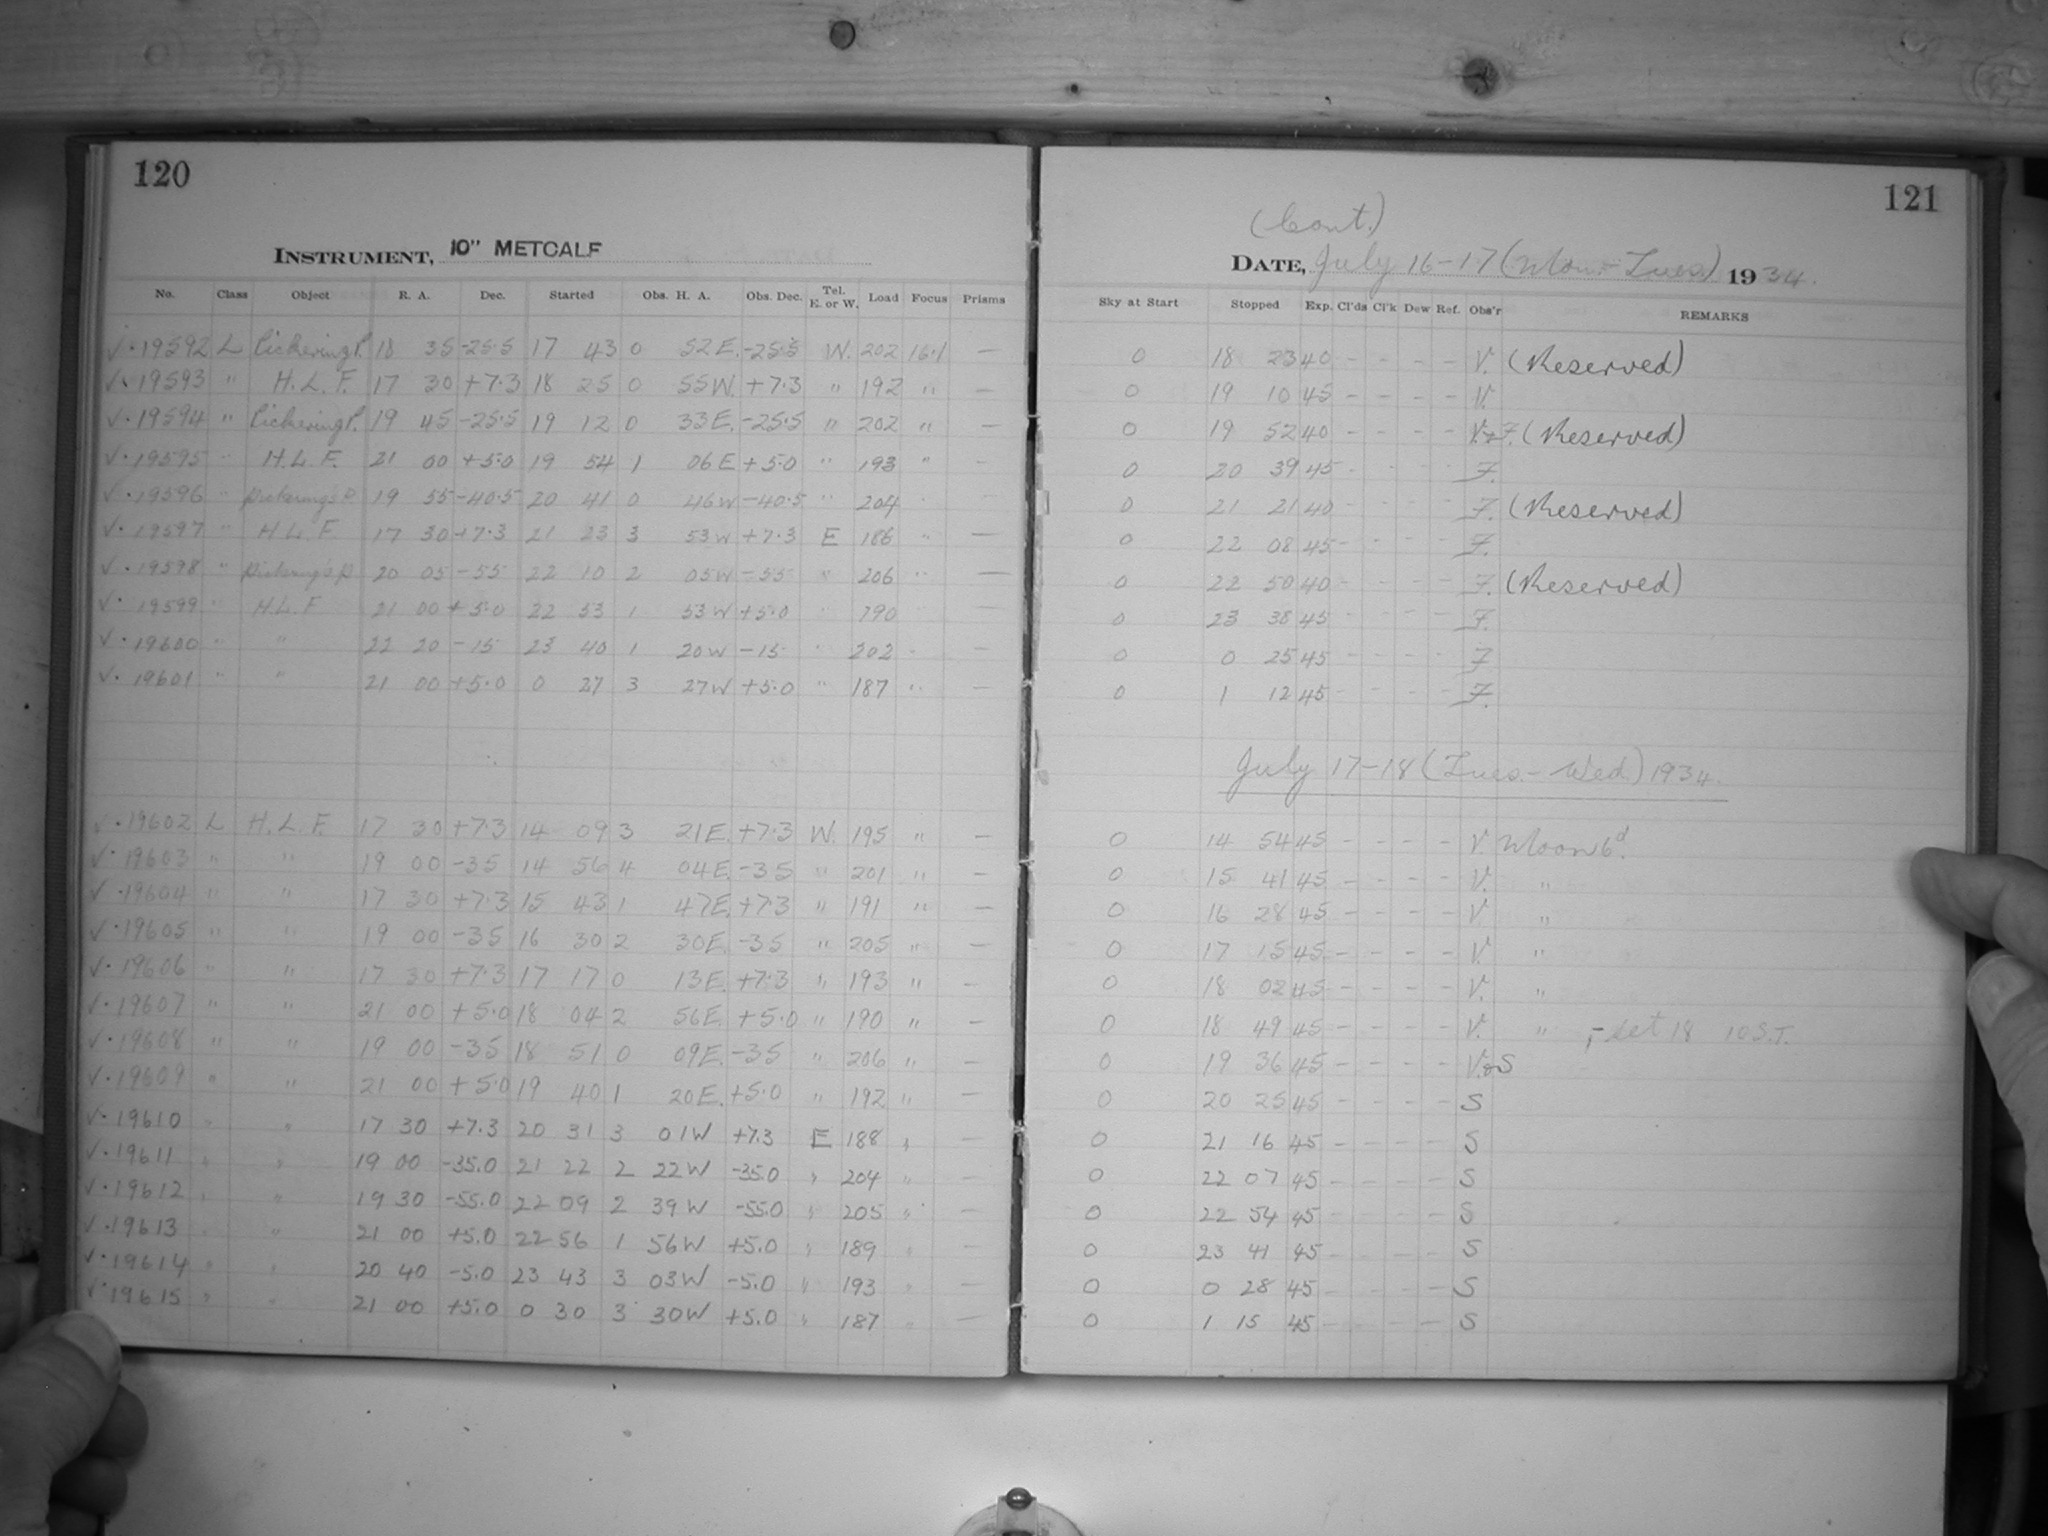 120
INSTRUMENT, 10" METCALF
No. Class Object R. A. Dec. Started Obs. H. A. Obs. Dec. Tel. E. or W. Load Focus Prisms
√ · 19592 L Pickering P. 18 35 -25·5 17 43 0 52 E. -25·5 W. 202 16·1 —
√ · 19593 " H. L. F. 17 30 +7·3 18 25 0 55 W. +7·3 " 192 " —
√ · 19594 " Pickering P. 19 45 -25·5 19 12 0 33 E. -25·5 " 202 " —
√ · 19595 " H. L. F. 21 00 +5·0 19 54 1 06 E +5·0 " 193 " —
√ · 19596 " Pickering's P. 19 55 -40·5 20 41 0 46 W -40·5 " 204 " —
√ · 19597 " H. L. F. 17 30 +7·3 21 23 3 53 W +7·3 E 186 " —
√ · 19598 " Pickering's P. 20 05 -55 22 10 2 05 W -55 " 206 " —
√ · 19599 " H. L. F 21 00 +5·0 22 53 1 53 W +5·0 " 190 —
√ · 19600 " " 22 20 -15 23 40 1 20 W -15 " 202 " —
√ · 19601 " " 21 00 +5·0 0 27 3 27 W +5·0 " 187 " —
√ · 19602 L H. L. F. 17 30 +7·3 14 09 3 21 E. +7·3 W. 195 " —
√ · 19603 " " 19 00 -35 14 56 4 04 E. -35 " 201 " —
√ · 19604 " " 17 30 +7·3 15 43 1 47 E. +7·3 " 191 " —
√ · 19605 " " 19 00 -35 16 30 2 30 E. -35 " 205 " —
√ · 19606 " " 17 30 +7·3 17 17 0 13 E. +7·3 " 193 " —
√ · 19607 " " 21 00 +5·0 18 04 2 56 E. +5·0 " 190 " —
√ · 19608 " " 19 00 -35 18 51 0 09 E. -35 " 206 " —
√ · 19609 " " 21 00 +5·0 19 40 1 20 E. +5·0 " 192 " —
√ · 19610 " " 17 30 +7.3 20 31 3 01 W +7.3 E 188 " —
√ · 19611 " " 19 00 -35.0 21 22 2 22 W -35.0 " 204 " —
√ · 19612 " " 19 30 -55.0 22 09 2 39 W -55.0 " 205 " —
√ · 19613 " " 21 00 +5.0 22 56 1 56 W +5.0 " 189 " —
√ · 19614 " " 20 40 -5.0 23 43 3 03 W -5.0 " 193 " —
√ · 19615 " " 21 00 +5.0 0 30 3 30 W +5.0 " 187 " —
121
(Cont.)
DATE, July 16-17 (Mon.-Tues.) 1934.
Sky at Start Stopped Exp. Cl'ds Cl'k Dew Ref. Obs'r REMARKS
0 18 23 40 - - - - V. (Reserved)
0 19 10 45 - - - - V.
0 19 52 40 - - - - V. & F. (Reserved)
0 20 39 45 - - - - F.
0 21 21 40 - - - - F. (Reserved)
0 22 08 45 - - - - F.
0 22 50 40 - - - - F. (Reserved)
0 23 38 45 - - - - F.
0 0 25 45 - - - - F
0 1 12 45 - - - - F.
July 17-18 (Tues.-Wed.) 1934.
0 14 54 45 - - - - V. Moon 6d.
0 15 41 45 - - - - V. "
0 16 28 45 - - - - V. "
0 17 15 45 - - - - V. "
0 18 02 45 - - - - V. "
0 18 49 45 - - - - V. " ;- set 18 10 S.T.
0 19 36 45 - - - - V. & S
0 20 25 45 - - - - S
0 21 16 45 - - - - S
0 22 07 45 - - - - S
0 22 54 45 - - - - S
0 23 41 45 - - - - S
0 0 28 45 - - - - S
0 1 15 45 - - - - S